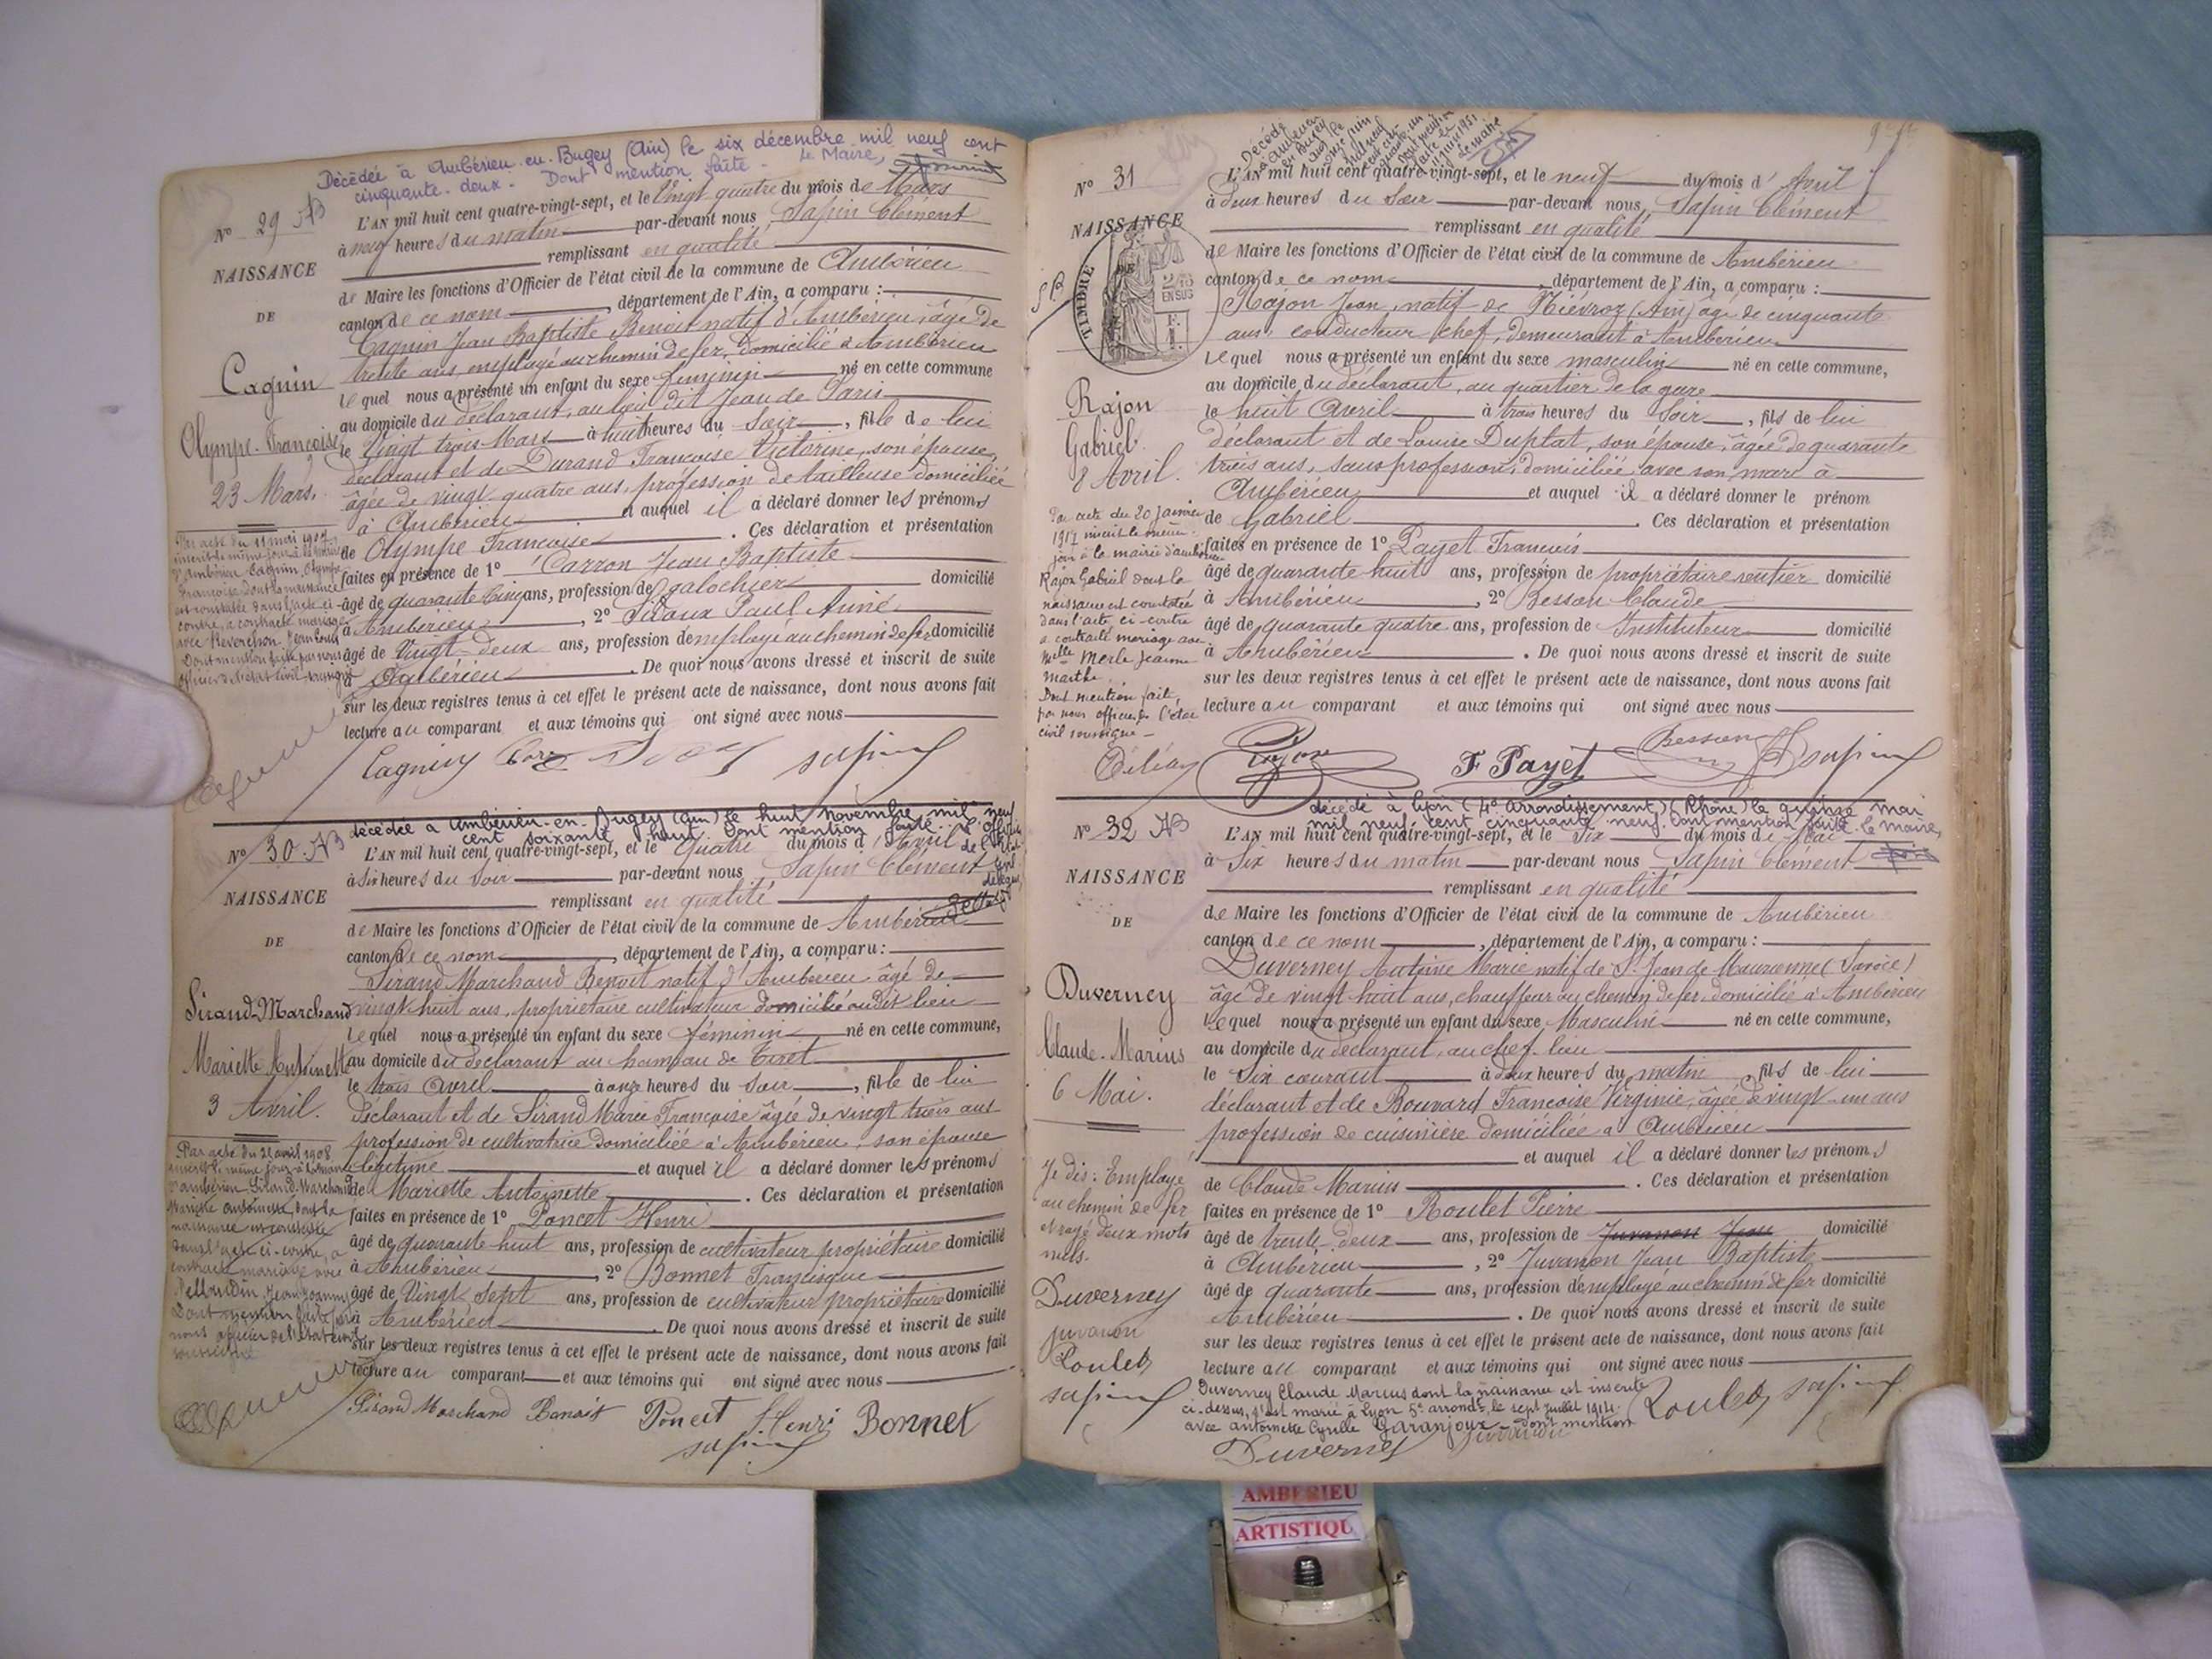 Décédée à Ambérieu-en-Bugey (Ain) le six décembre mil neuf cent
cinquante-deux. Dont mention faite. Le Maire,
N° 29 NB
NAISSANCE
DE
Cagnin
Olympe-Françoise
23 Mars.
Par acte du 11 mai 1907
inscrit le même jour à la mairie
d'Ambérieu Cagnin Olympe
Françoise dont la naissance
est constatée dans l'acte ci-
contre, a contracté mariage
avec Reverchon Jean Louis
Dont mention faite par nous
officier de l'état civil soussigné
L'AN mil huit cent quatre-vingt-sept, et le Vingt quatre du mois de Mars
à neuf heures du matin par-devant nous Sapin Clément
remplissant en qualité
de Maire les fonctions d'Officier de l'état civil de la commune de Ambérieu
canton de ce nom, département de l'Ain, a comparu :
Cagnin Jean Baptiste Benoit natif d'Ambérieu, âgé de
trente ans, employé au chemin de fer, domicilié à Ambérieu
lequel nous a présenté un enfant du sexe féminin né en cette commune
au domicile du déclarant, au lieu dit Jean de Paris
le Vingt trois Mars à huit heures du Soir, fille de lui
déclarant et de Durand Françoise Victorine, son épouse,
âgée de vingt quatre ans, profession de tailleuse domiciliée
à Ambérieu et auquel il a déclaré donner les prénoms
de Olympe Françoise. Ces déclaration et présentation
faites en présence de 1° Carron Jean Baptiste
âgé de quarante cinq ans, profession de galochier domicilié
à Ambérieu, 2° Sidoux Paul Aimé
âgé de Vingt-deux ans, profession d'employé au chemin de fer domicilié
à Ambérieu. De quoi nous avons dressé et inscrit de suite
sur les deux registres tenus à cet effet le présent acte de naissance, dont nous avons fait
lecture au comparant et aux témoins qui ont signé avec nous
Cagnin Sapin
décédée à Ambérieu-en-Bugey (Ain) le huit novembre mil neuf
cent soixante-huit. Dont mention faite. L'officier
de l'état
civil
délégué,
N° 30 NB
NAISSANCE
DE
Sirand-Marchand
Mariette Antoinette
3 Avril.
Par acte du 21 avril 1908
inscrit le même jour à la mairie
d'Ambérieu Sirand-Marchand
Mariette Antoinette, dont la
naissance est constatée
dans l'acte ci-contre, a
contracté mariage avec
Pellaudin Jean Joanny
Dont mention faite par
nous officier de l'état civil
soussigné
L'AN mil huit cent quatre-vingt-sept, et le Quatre du mois d'Avril
à six heures du soir par-devant nous Sapin Clément
remplissant en qualité
de Maire les fonctions d'Officier de l'état civil de la commune de Ambérieu
canton de ce nom, département de l'Ain, a comparu :
Sirand Marchand Benoit natif d'Ambérieu âgé de
vingt huit ans, propriétaire cultivateur domicilié audit lieu
lequel nous a présenté un enfant du sexe féminin né en cette commune,
au domicile du déclarant au hameau de Tiret
le trois Avril à onze heures du Soir, fille de lui
déclarant et de Sirand Marie Françoise âgée de vingt trois ans
profession de cultivatrice domiciliée à Ambérieu, son épouse
légitime et auquel il a déclaré donner les prénoms
de Mariette Antoinette. Ces déclaration et présentation
faites en présence de 1° Poncet Henri
âgé de quarante huit ans, profession de cultivateur propriétaire domicilié
à Ambérieu, 2° Bonnet Francisque
âgé de Vingt Sept ans, profession de cultivateur propriétaire domicilié
à Ambérieu. De quoi nous avons dressé et inscrit de suite
sur les deux registres tenus à cet effet le présent acte de naissance, dont nous avons fait
lecture au comparant et aux témoins qui ont signé avec nous
Sirand Marchand Benoit Poncet Henri Bonnet
Sapin
Décédé
à Ambérieu
en Bugey
N° 31
NAISSANCE
DE
TIMBRE
2/10
EN SUS
Rajon
Gabriel
8 Avril.
Par acte du 20 Janvier
1917 inscrit le même
jour à la mairie d'Ambérieu
Rajon Gabriel dont la
naissance est constatée
dans l'acte ci-contre
a contracté mariage avec
Melle Merle Jeanne
Marthe.
Dont mention fait
par nous officier de l'état
civil soussigné
L'AN mil huit cent quatre-vingt-sept, et le neuf du mois d'Avril
à deux heures du Soir par-devant nous Sapin Clément
remplissant en qualité
de Maire les fonctions d'Officier de l'état civil de la commune de Ambérieu
canton de ce nom, département de l'Ain, a comparu :
Rajon Jean, natif de Niévroz (Ain) âgé de cinquante
ans, conducteur chef, demeurant à Ambérieu
lequel nous a présenté un enfant du sexe masculin né en cette commune,
au domicile du déclarant, au quartier de la gare
le huit Avril à trois heures du Soir, fils de lui
déclarant et de Louise Duplat, son épouse, âgée de quarante
trois ans, sans profession, domiciliée avec son mari à
Ambérieu et auquel il a déclaré donner le prénom
de Gabriel. Ces déclaration et présentation
faites en présence de 1° Payet François
âgé de quarante huit ans, profession de propriétaire rentier domicilié
à Ambérieu, 2° Besson Claude
âgé de quarante quatre ans, profession de Instituteur domicilié
à Ambérieu. De quoi nous avons dressé et inscrit de suite
sur les deux registres tenus à cet effet le présent acte de naissance, dont nous avons fait
lecture au comparant et aux témoins qui ont signé avec nous
Rajon F. Payet Besson Sapin
décédé à Lyon (4e arrondissement) (Rhône) le quinze mai
mil neuf cent cinquante neuf. Dont mention faite. Le maire,
N° 32 NB
NAISSANCE
DE
Duverney
Claude-Marius
6 Mai.
Je dis: Employé
au chemin de fer
et rayé deux mots
nuls.
Duverney
Juvanon
Roulet
Sapin
L'AN mil huit cent quatre-vingt-sept, et le Six du mois de Mai
à Six heures du matin par-devant nous Sapin Clément
remplissant en qualité
de Maire les fonctions d'Officier de l'état civil de la commune de Ambérieu
canton de ce nom, département de l'Ain, a comparu :
Duverney Antoine Marie natif de St Jean de Maurienne (Savoie)
âgé de vingt huit ans, chauffeur au chemin de fer, domicilié à Ambérieu
lequel nous a présenté un enfant du sexe Masculin né en cette commune,
au domicile du déclarant, au chef-lieu
le Six courant à deux heures du matin, fils de lui
déclarant et de Bouvard Françoise Virginie, âgée de vingt-un ans
profession de cuisinière domiciliée à Ambérieu
et auquel il a déclaré donner les prénoms
de Claude Marius. Ces déclaration et présentation
faites en présence de 1° Roulet Pierre
âgé de trente-deux ans, profession de Juvanon Jean domicilié
à Ambérieu, 2° Juvanon Jean Baptiste
âgé de quarante ans, profession d'employé au chemin de fer domicilié
Ambérieu. De quoi nous avons dressé et inscrit de suite
sur les deux registres tenus à cet effet le présent acte de naissance, dont nous avons fait
lecture au comparant et aux témoins qui ont signé avec nous
Duverney Claude Marius dont la naissance est inscrite
ci-dessus, s'est marié à Lyon 5e arrondt, le sept juillet 1914
avec Antoinette Cyrille Garanjoux - dont mention
Roulet Sapin
Duverney Juvanon
AMBERIEU
ARTISTIQU